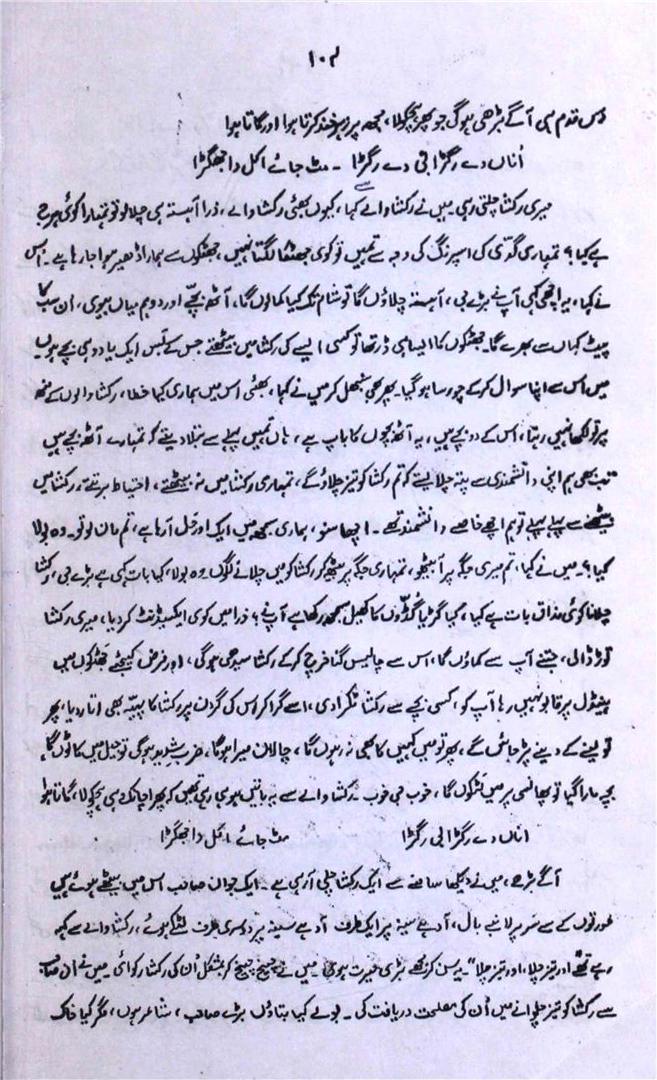 ۱۰۴
دس قدم ہی آگے بڑھی ہوگی جو پھر ہچکولا، مجھ پر زہرخند کرتا ہوا اور گاتا ہوا
اناں دے رگڑا نی دے رگڑا ۔ مٹ جائے اکل دا جھگڑا
میری رکشا چلتی رہی میں نے رکشا والے کہا، کیوں بھئی رکشا والے، ذرا آہستہ ہی چلا لو تو تمہارا کوئی ہرج
ہے کیا؟ تمہاری گدّی کی اسپرنگ کی وجہ سے تمہیں تو کوی جھٹکا لگتا نہیں، جھٹکوں سے ہمارا ڈھیر ہوا جا رہا ہے۔ اس
نے کہا، یہ اچھی کہی آپ نے بڑے بی، آہستہ چلاؤں گا تو شام تک کیا کماؤں گا، آٹھ بچّے اور دو ہم میاں بیوی، ان سب کا
پیٹ کہاں سے بھرے گا۔ جھٹکوں کا ایسا ہی ڈر تھا تو کسی ایسے کی رکشا میں بیٹھتے جس کے بس ایک یا دو ہی بچے ہوں
میں اس سے اپنا سوال کرکے چور سا ہو گیا۔ پھر بھی سنبھل کر میں نے کہا، بھئی اس میں ہماری کیا خطا، رکشا والوں کے منھ
پر تو لکھا نہیں رہتا، اس کے دو بچے ہیں، یہ آٹھ بچوں کا باپ ہے، ہاں تمہیں پہلے سے بتلا دیتے کہ تمہارے آٹھ بچے ہیں
تب بھی ہم اپنی دانشمندی سے پتہ چلا لیتے کہ تم رکشا کو تیز چلاؤ گے، تمہاری رکشا میں نہ بیٹھتے، احتیاط برتتے، رکشا میں
بیٹھنے سے پہلے پہلے تو ہم اچھے خاصے دانشمند تھے۔ اچھا سنو، ہماری سمجھ میں ایک اور حل آ رہا ہے، تم مان لو تو۔ وہ بولا
کیا؟ میں نے کہا، تم میری جگہ پر آ بیٹھو، تمہاری جگہ پر بیٹھ کر رکشا کو میں چلانے لگوں۔ وہ بولا، کیا بات کہی ہے بڑے بی، رکشا
چلانا کوئی مذاق بات ہے کیا، کیا گڑیا گُڈّوں کا کھیل سمجھ رکھا ہے آپ نے؟ ذرا میں کوی ایکسیڈنٹ کر دیا، میری رکشا
توڑ ڈالی، جتنے آپ سے کماؤں گا، اس سے چالیس گنا خرچ کرکے رکشا سیدھی ہوگی، اور فرض کیجئے جھٹکوں میں
ہینڈل پر قابو نہیں رہا آپ کو، کسی بچے سے رکشا ٹکرا دی، اسے گرا کر اس کی گردن پر رکشا کا پہیّہ بھی اتار دیا، پھر
تو لینے کے دینے پڑ جائیں گے، پھر تو میں کہیں کا بھی نہ رہوں گا، چالان میرا ہوگا، ضرب شدید ہوگی تو جیل میں کاٹوں گا،
بچہ مارا گیا تو پھانسی پر میں لٹکوں گا، خوب جی خوب۔ رکشا والے سے یہ باتیں ہو ہی رہی تھیں کہ پھر اچانک وہی ہچکولا، گاتا ہوا
اناں دے رگڑا نی رگڑا مٹ جائے اکل دا جھگڑا
آگے بڑھے، میں نے دیکھا سامنے سے ایک رکشا چلی آ رہی ہے۔ ایک جوان صاحب اس میں بیٹھے ہوئے ہیں
عورتوں کے سے سر پر لانبے بال، آدھے سینہ پر ایک طرف آدھے سینہ پر دوسری طرف لٹکے ہوئے، رکشا والے سے کہہ
رہے تھے "اور تیز چلا، اور تیز چلا" یہ سن کر مجھے بڑی حیرت ہوئی۔ میں نے چیخ چیخ کر بمشکل اُن کی رکشا رکوائی۔ میں نے ان صاحب
سے رکشا کو تیز چلوانے میں اُن کی مصلحت دریافت کی۔ بولے کیا بتاؤں بڑے صاحب، شاعر ہوں، مگر کیا خاک